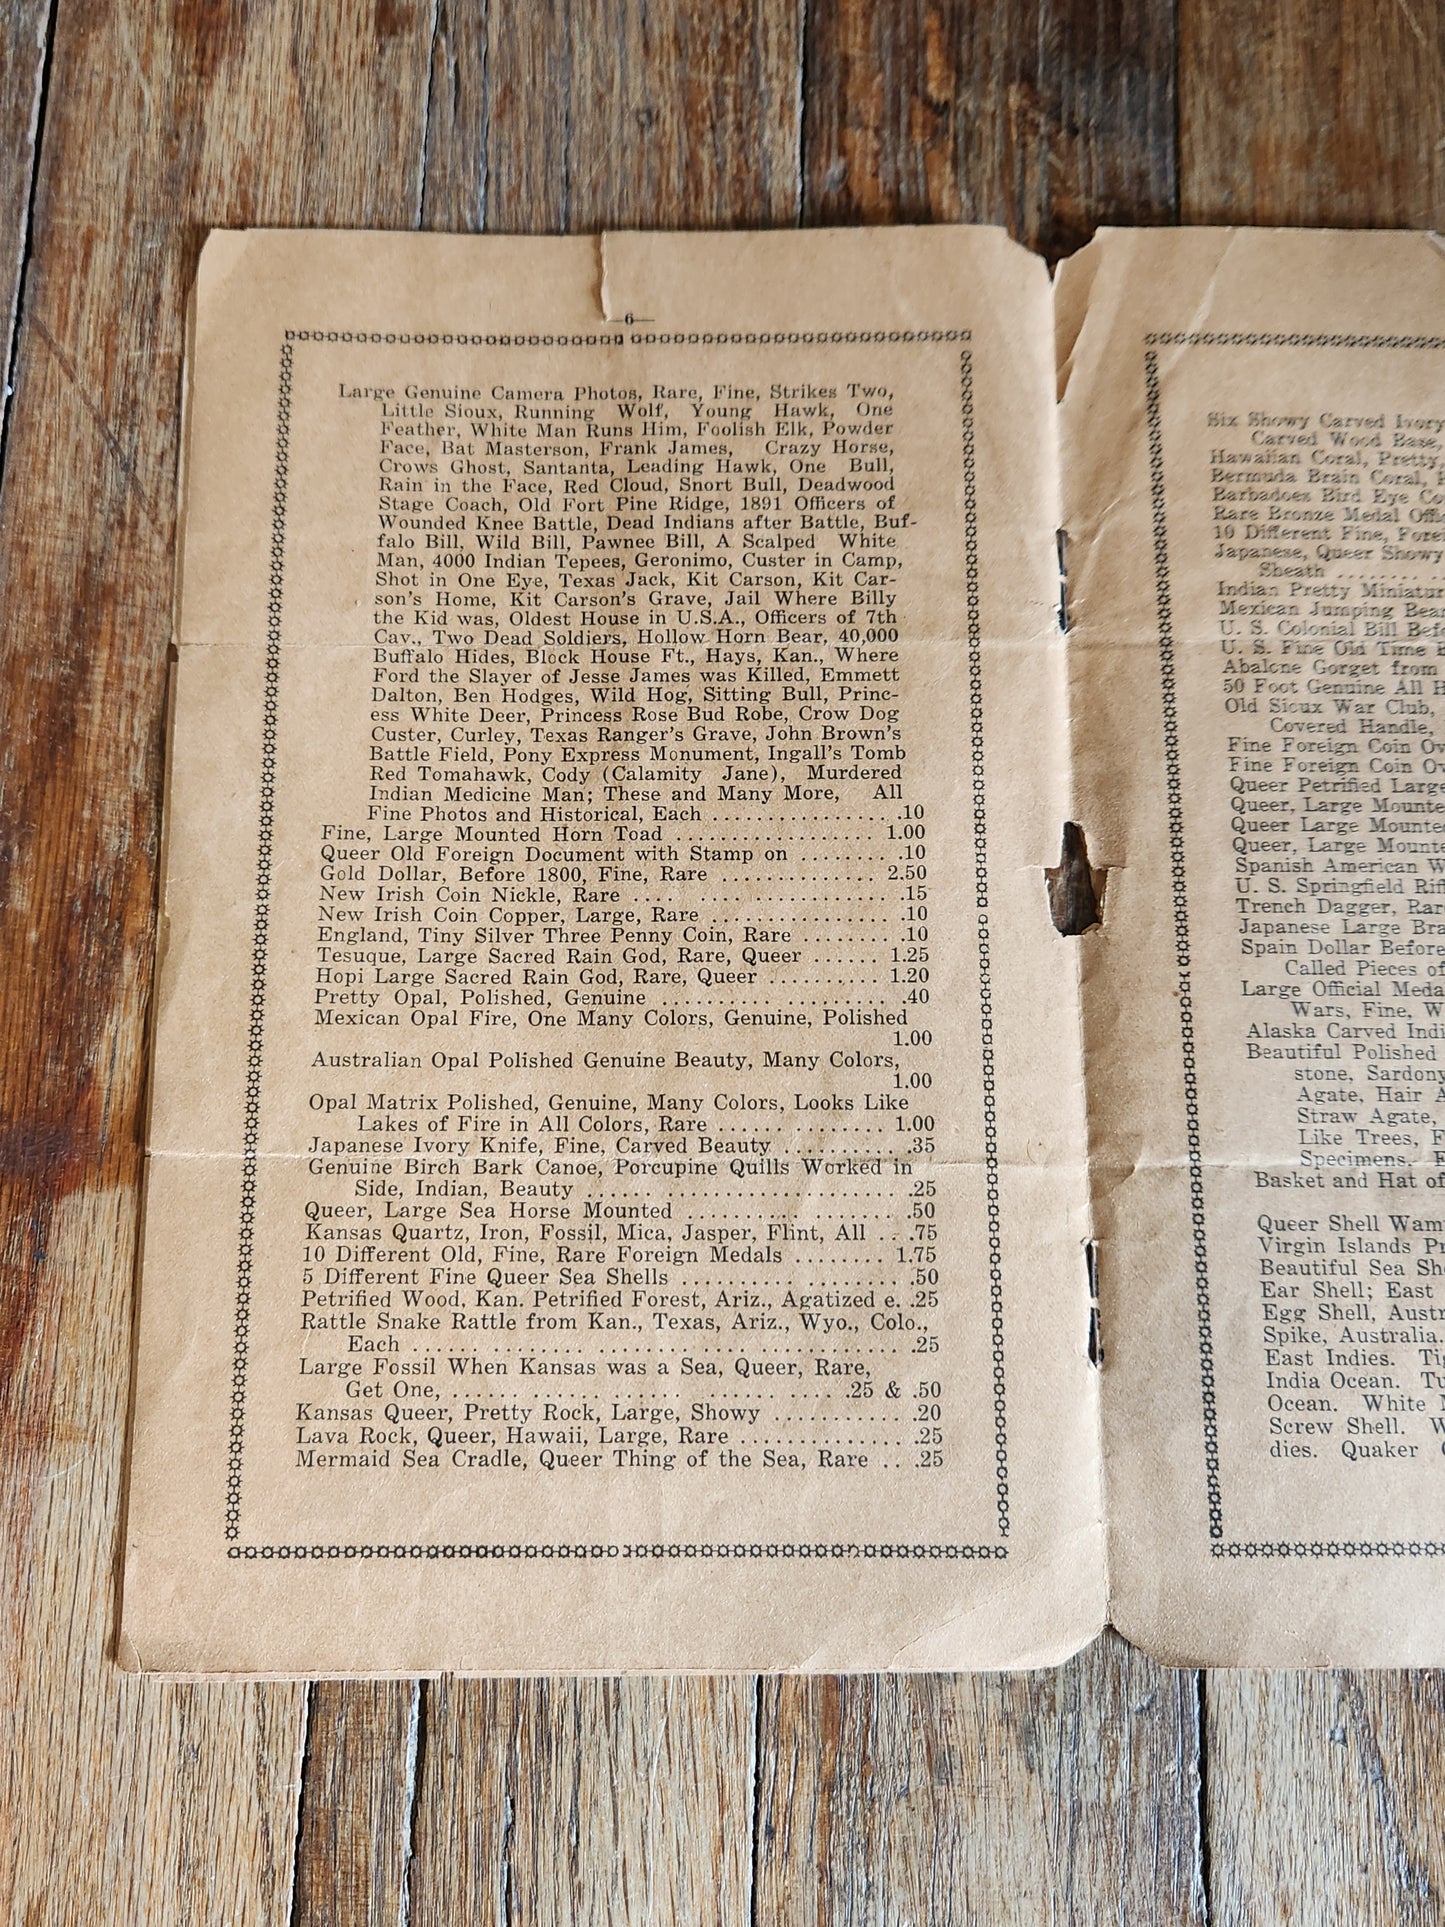 —6—
Large Genuine Camera Photos, Rare, Fine, Strikes Two,
Little Sioux, Running Wolf, Young Hawk, One
Feather, White Man Runs Him, Foolish Elk, Powder
Face, Bat Masterson, Frank James, Crazy Horse,
Crows Ghost, Santanta, Leading Hawk, One Bull,
Rain in the Face, Red Cloud, Snort Bull, Deadwood
Stage Coach, Old Fort Pine Ridge, 1891 Officers of
Wounded Knee Battle, Dead Indians after Battle, Buf-
falo Bill, Wild Bill, Pawnee Bill, A Scalped White
Man, 4000 Indian Tepees, Geronimo, Custer in Camp,
Shot in One Eye, Texas Jack, Kit Carson, Kit Car-
son's Home, Kit Carson's Grave, Jail Where Billy
the Kid was, Oldest House in U.S.A., Officers of 7th
Cav., Two Dead Soldiers, Hollow Horn Bear, 40,000
Buffalo Hides, Block House Ft., Hays, Kan., Where
Ford the Slayer of Jesse James was Killed, Emmett
Dalton, Ben Hodges, Wild Hog, Sitting Bull, Princ-
ess White Deer, Princess Rose Bud Robe, Crow Dog
Custer, Curley, Texas Ranger's Grave, John Brown's
Battle Field, Pony Express Monument, Ingall's Tomb
Red Tomahawk, Cody (Calamity Jane), Murdered
Indian Medicine Man; These and Many More, All
Fine Photos and Historical, Each ................ .10
Fine, Large Mounted Horn Toad .................. 1.00
Queer Old Foreign Document with Stamp on ........ .10
Gold Dollar, Before 1800, Fine, Rare .............. 2.50
New Irish Coin Nickle, Rare .... ................. .15
New Irish Coin Copper, Large, Rare ................ .10
England, Tiny Silver Three Penny Coin, Rare ........ .10
Tesuque, Large Sacred Rain God, Rare, Queer ...... 1.25
Hopi Large Sacred Rain God, Rare, Queer .......... 1.20
Pretty Opal, Polished, Genuine .......... ......... .40
Mexican Opal Fire, One Many Colors, Genuine, Polished
1.00
Australian Opal Polished Genuine Beauty, Many Colors,
1.00
Opal Matrix Polished, Genuine, Many Colors, Looks Like
Lakes of Fire in All Colors, Rare ...... ........ 1.00
Japanese Ivory Knife, Fine, Carved Beauty .......... .35
Genuine Birch Bark Canoe, Porcupine Quills Worked in
Side, Indian, Beauty ...... ..................... .25
Queer, Large Sea Horse Mounted .......... ....... .50
Kansas Quartz, Iron, Fossil, Mica, Jasper, Flint, All .. .75
10 Different Old, Fine, Rare Foreign Medals ........ 1.75
5 Different Fine Queer Sea Shells .......... ........ .50
Petrified Wood, Kan. Petrified Forest, Ariz., Agatized e. .25
Rattle Snake Rattle from Kan., Texas, Ariz., Wyo., Colo.,
Each ...... ........ ........ .... ............. .25
Large Fossil When Kansas was a Sea, Queer, Rare,
Get One, ...... ...... ...... ...... .... .25 & .50
Kansas Queer, Pretty Rock, Large, Showy ........... .20
Lava Rock, Queer, Hawaii, Large, Rare .............. .25
Mermaid Sea Cradle, Queer Thing of the Sea, Rare .. .25
Six Showy Carved Ivory
Carved Wood Base,
Hawaiian Coral, Pretty,
Bermuda Brain Coral,
Barbadoes Bird Eye
Rare Bronze Medal
10 Different Fine,
Japanese, Queer Showy
Sheath ........
Indian Pretty
Mexican Jumping
U. S. Colonial Bill
U. S. Fine Old Time
Abalone Gorget from
50 Foot Genuine All
Old Sioux War Club,
Covered Handle,
Fine Foreign Coin
Fine Foreign Coin
Queer Petrified Large
Queer, Large
Queer Large
Queer, Large
Spanish American
U. S. Springfield
Trench Dagger,
Japanese Large
Spain Dollar Before
Called Pieces of
Large Official
Wars, Fine,
Alaska Carved
Beautiful Polished
stone, Sardony
Agate, Hair
Straw Agate,
Like Trees,
Specimens.
Basket and Hat of
Queer Shell
Virgin Islands
Beautiful Sea
Ear Shell; East
Egg Shell,
Spike, Australia.
East Indies.
India Ocean.
Ocean. White
Screw Shell.
dies. Quaker